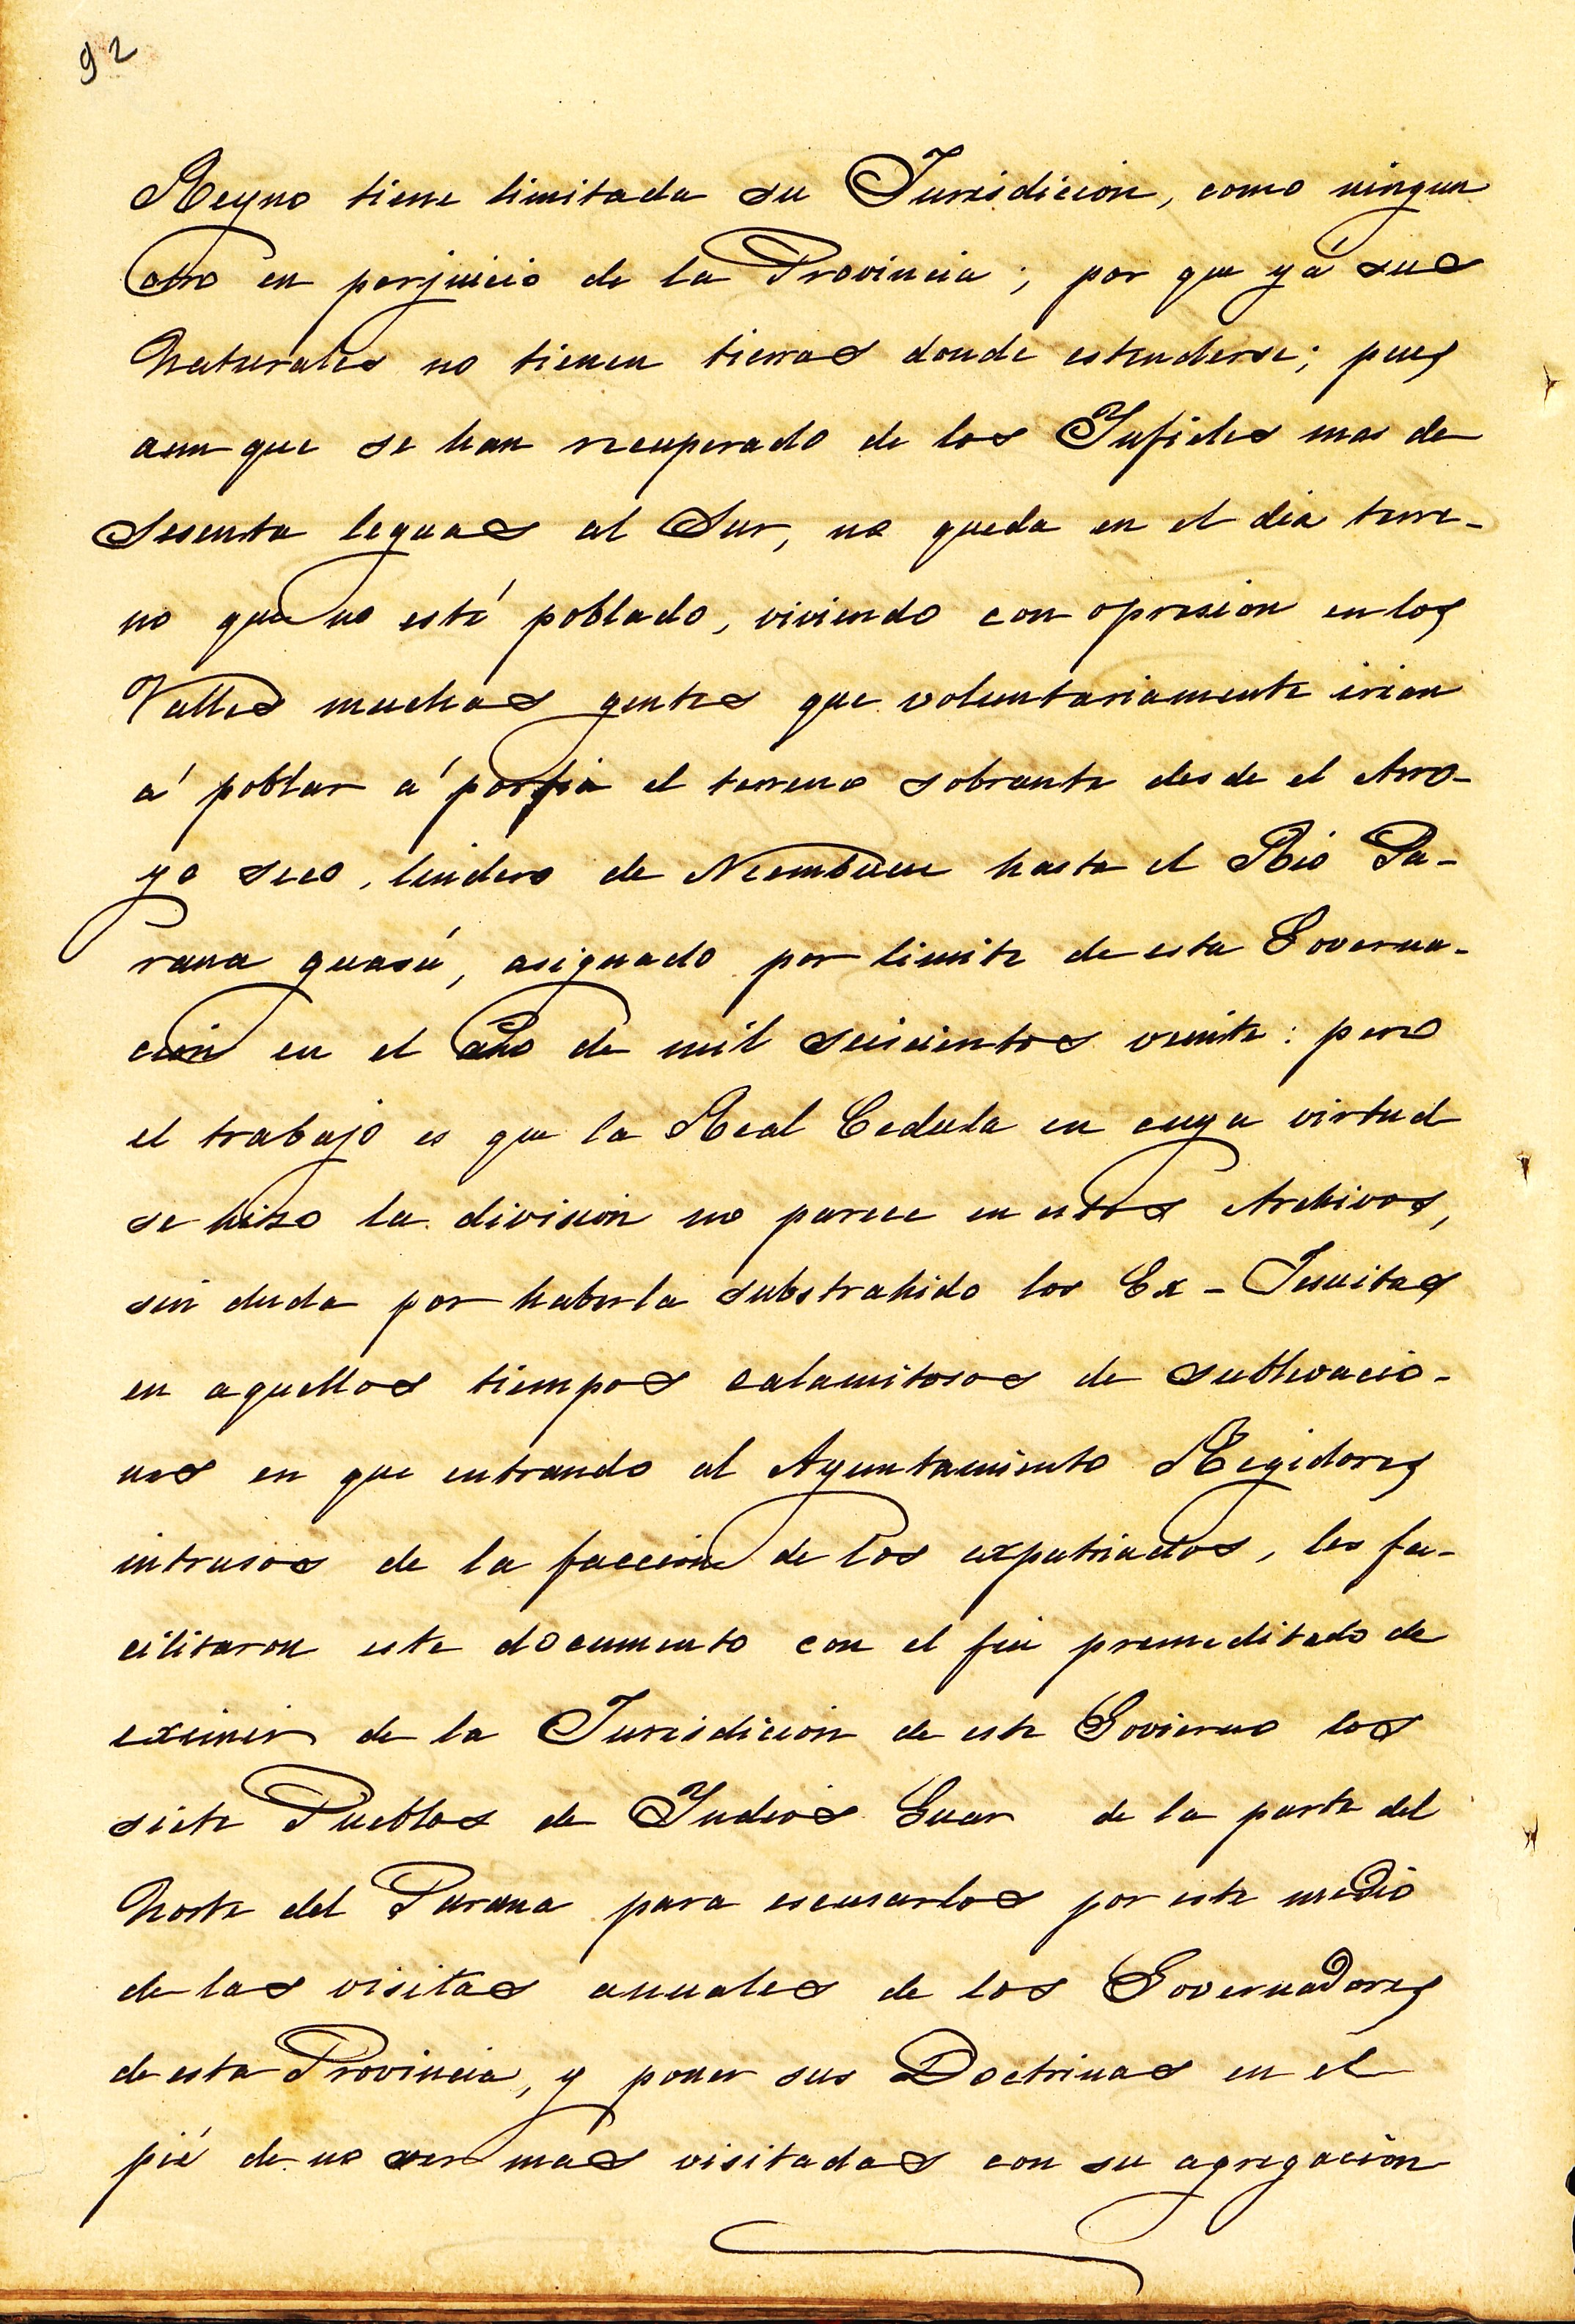 92
Reyno tiene limitada su Jurisdicion, como ningun
otro en perjuicio de la Provincia; por que yá sus
Naturales no tienen tierras donde estenderse; pues
aun que se han recuperado de los Infieles mas de
Sesenta leguas al Sur, no queda en el dia terre-
no que no esté poblado, viviendo con opresion en los
Valles muchas gentes que voluntariamente irian
á poblar á porfia el terreno sobrante desde el Arro-
yo seco, lindero de Neembucu hasta el Rio Pa-
rana guasú, asignado por limite de esta Governa-
cion en el año de mil seiscientos veinte: pero
el trabajo es que la Real Cedula en cuya virtud
se hizo la division no parece en estos Archivos,
sin duda por haberla substrahido los Ex-Jesuitas
en aquellos tiempos calamitosos de sublevacio-
nes en que entrando al Ayuntamiento Regidores
intrusos de la faccion de los expatriados, les fa-
cilitaron este documento con el fin premeditado de
eximir de la Jurisdicion de este Govierno los
siete Pueblos de Indios Guar de la parte del
Norte del Parana para escusarlos por este medio
de las visitas anuales de los Governadores
de esta Provincia, y poner sus Doctrinas en el
pié de no ser mas visitadas con su agregacion